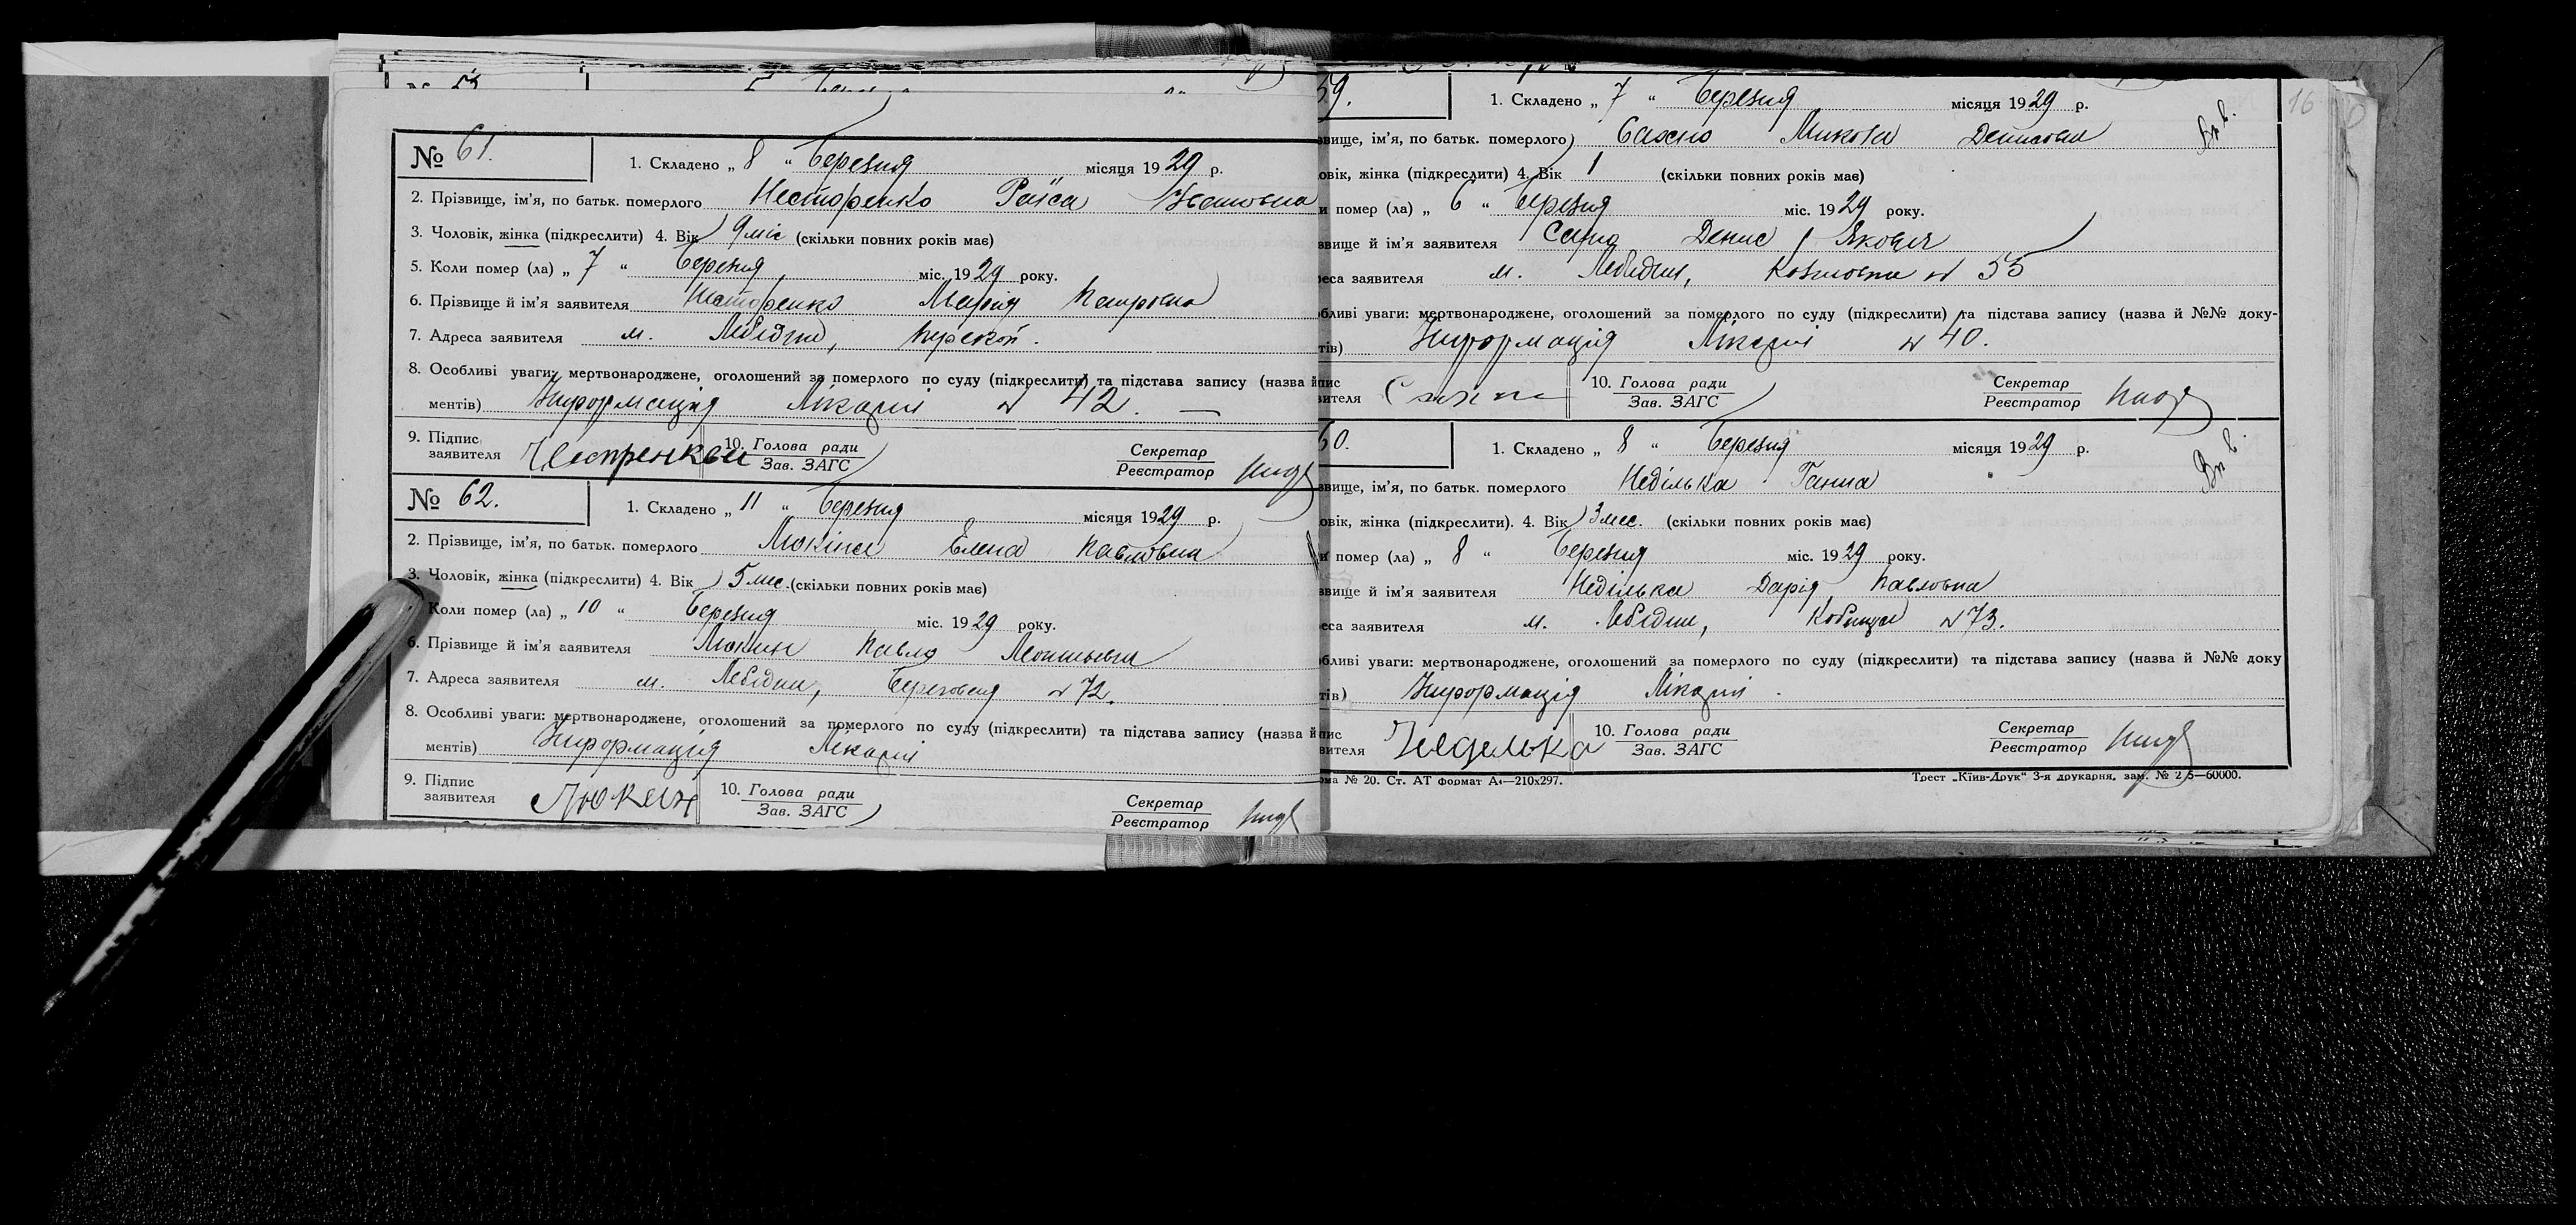 № 61.
1. Складено „ 8 “ Березня місяця 1929 р.
2. Прізвище, ім’я, по батьк. померлого Несторенко Раїса Івановна
3. Чоловік, жінка (підкреслити) 4. Вік 9 міс (скільки повних років має)
5. Коли помер (ла) „ 7 “ Березня міс. 1929 року.
6. Прізвище й ім’я заявителя Несторенко Марія
7. Адреса заявителя м. Лебідин,
8. Особливі уваги: мертвонароджене, оголошений за померлого по суду (підкреслити) та підстава запису (назва й
ментів) Інформація Лікарні № 42. —
9. Підпис заявителя 10. Голова ради Зав. ЗАГС Секретар Реєстратор
№ 62.
1. Складено „ 11 “ Березня місяця 1929 р.
2. Прізвище, ім’я, по батьк. померлого Елена Павловна
3. Чоловік, жінка (підкреслити) 4. Вік 5 мес. (скільки повних років має)
Коли помер (ла) „ 10 “ Березня міс. 1929 року.
6. Прізвище й ім’я заявителя Люкин Павло
7. Адреса заявителя м. Лебідин, Береговая № 72.
8. Особливі уваги: мертвонароджене, оголошений за померлого по суду (підкреслити) та підстава запису (назва й
ментів) Інформація Лікарні
9. Підпис заявителя Люкин 10. Голова ради Зав. ЗАГС Секретар Реєстратор
16
59.
1. Складено „ 7 “ Березня місяця 1929 р.
звище, ім’я, по батьк. померлого Сахно Микола Денисович
овік, жінка (підкреслити) 4. Вік 1 (скільки повних років має)
и помер (ла) „ 6 “ Березня міс. 1929 року.
звище й ім’я заявителя Сахно Денис Якович
реса заявителя м. Лебідин, № 55
бливі уваги: мертвонароджене, оголошений за померлого по суду (підкреслити) та підстава запису (назва й №№ доку-
тів) Інформація Лікарні № 40.
пис вителя 10. Голова ради Зав. ЗАГС Секретар Реєстратор
60.
1. Складено „ 8 “ Березня місяця 1929 р.
звище, ім’я, по батьк. померлого Неділька Ганна
овік, жінка (підкреслити). 4. Вік 3 мес. (скільки повних років має)
и помер (ла) „ 8 “ Березня міс. 1929 року.
звище й ім’я заявителя Неділька Дарія Павловна
еса заявителя м. Лебідин, № 73.
бливі уваги: мертвонароджене, оголошений за померлого по суду (підкреслити) та підстава запису (назва й №№ доку
тів) Інформація Лікарні.
пис вителя Неделька 10. Голова ради Зав. ЗАГС Секретар Реєстратор
ома № 20. Ст. АТ формат А4—210х297. Трест „Київ-Друк“ 3-я друкарня, зам. №